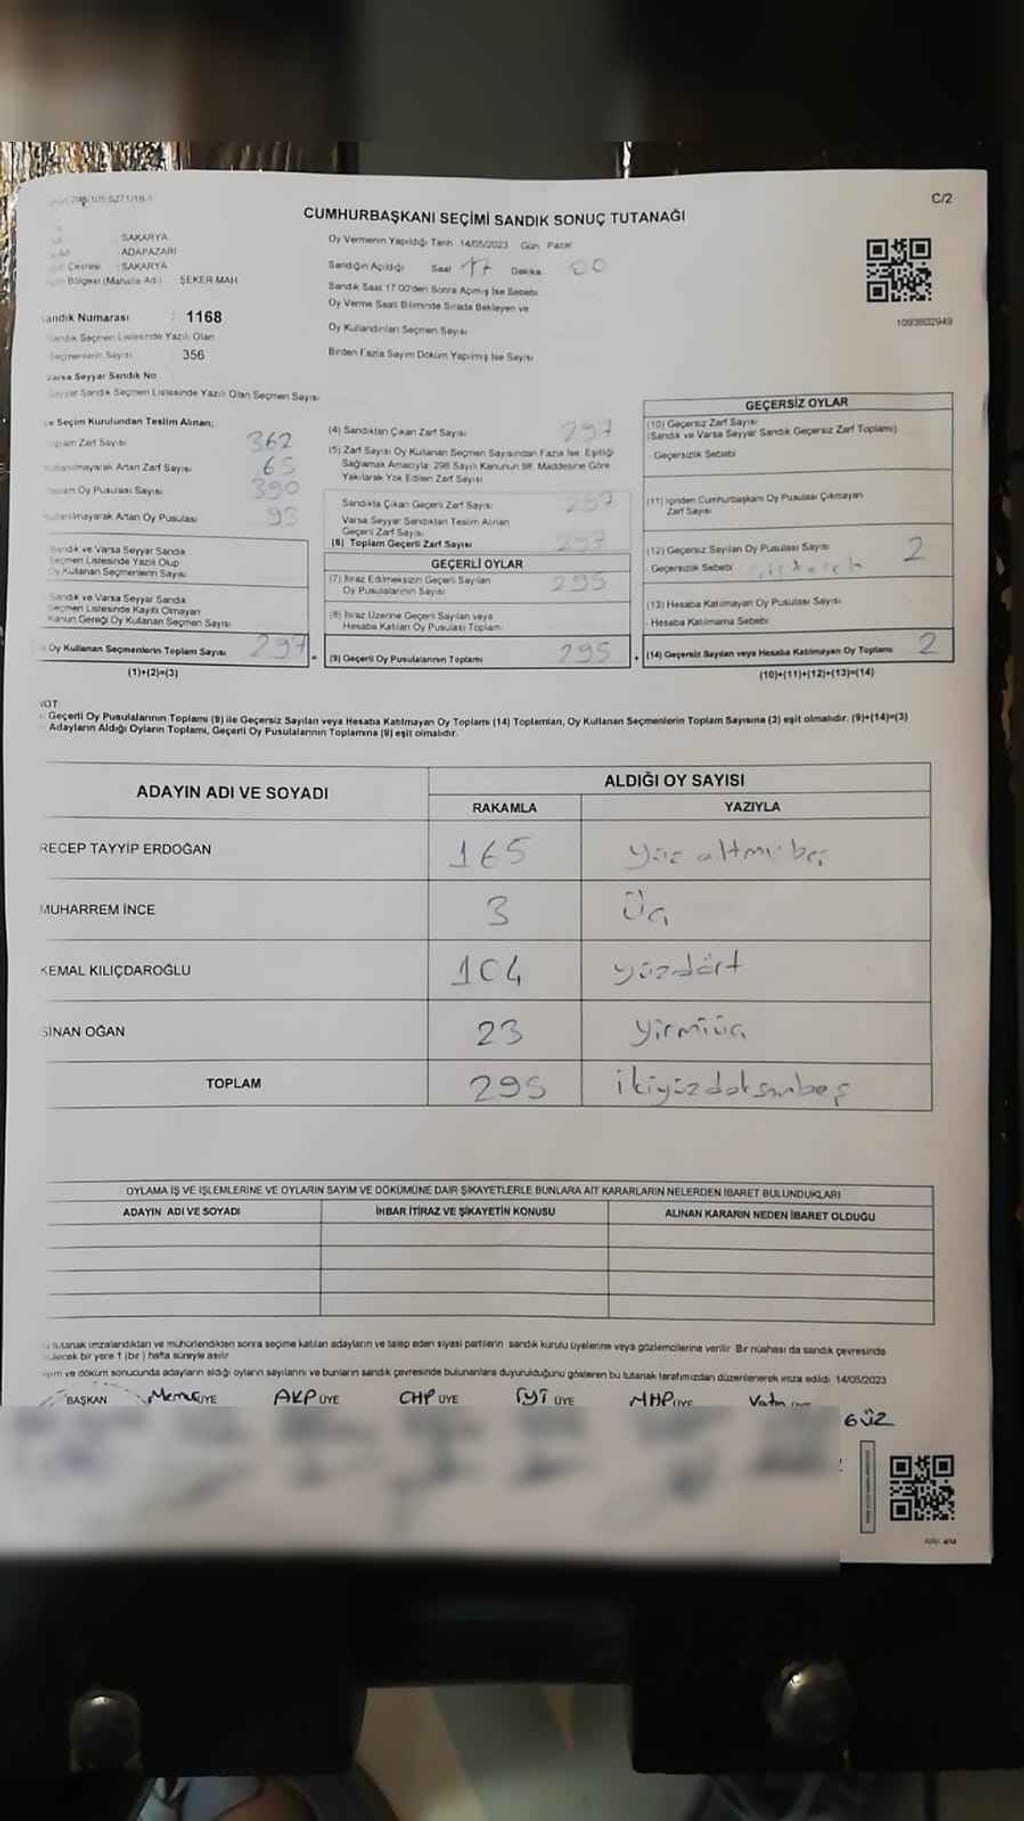 C/2
CUMHURBAŞKANI SEÇİMİ SANDIK SONUÇ TUTANAĞI
SAKARYA
ADAPAZARI
Çevresi : SAKARYA
Bölgesi (Mahalle Adı) ŞEKER MAH
Sandık Numarası : 1168
Sandık Seçmen Listesinde Yazılı Olan
Seçmenlerin Sayısı 356
Varsa Seyyar Sandık No
Seyyar Sandık Seçmen Listesinde Yazılı Olan Seçmen Sayısı
Oy Vermenin Yapıldığı Tarih 14/05/2023 Gün Pazar
Sandığın Açıldığı Saat 17 Dakika 00
Sandık Saat 17.00'den Sonra Açılmış İse Sebebi
Oy Verme Saati Bitiminde Sırada Bekleyen ve
Oy Kullandırılan Seçmen Sayısı
Birden Fazla Sayım Döküm Yapılmış İse Sayısı
1093602949
Seçim Kurulundan Teslim Alınan;
Toplam Zarf Sayısı 362
Kullanılmayarak Artan Zarf Sayısı 65
Toplam Oy Pusulası Sayısı 390
Kullanılmayarak Artan Oy Pusulası 93
Sandık ve Varsa Seyyar Sandık
Seçmen Listesinde Yazılı Olup
Oy Kullanan Seçmenlerin Sayısı
Sandık ve Varsa Seyyar Sandık
Seçmen Listesinde Kayıtlı Olmayan
Kanun Gereği Oy Kullanan Seçmen Sayısı
Oy Kullanan Seçmenlerin Toplam Sayısı 297
(1)+(2)=(3)
(4) Sandıktan Çıkan Zarf Sayısı 297
(5) Zarf Sayısı Oy Kullanan Seçmen Sayısından Fazla İse, Eşitliği
Sağlamak Amacıyla; 298 Sayılı Kanunun 98. Maddesine Göre
Yakılarak Yok Edilen Zarf Sayısı
Sandıkta Çıkan Geçerli Zarf Sayısı 297
Varsa Seyyar Sandıktan Teslim Alınan
Geçerli Zarf Sayısı
(6) Toplam Geçerli Zarf Sayısı 297
GEÇERLİ OYLAR
(7) İtiraz Edilmeksizin Geçerli Sayılan
Oy Pusulalarının Sayısı 295
(8) İtiraz Üzerine Geçerli Sayılan veya
Hesaba Katılan Oy Pusulası Toplamı
(9) Geçerli Oy Pusulalarının Toplamı 295
GEÇERSİZ OYLAR
(10) Geçersiz Zarf Sayısı
(Sandık ve Varsa Seyyar Sandık Geçersiz Zarf Toplamı)
- Geçersizlik Sebebi
(11) İçinden Cumhurbaşkanı Oy Pusulası Çıkmayan
Zarf Sayısı
(12) Geçersiz Sayılan Oy Pusulası Sayısı 2
- Geçersizlik Sebebi
(13) Hesaba Katılmayan Oy Pusulası Sayısı
- Hesaba Katılmama Sebebi
(14) Geçersiz Sayılan veya Hesaba Katılmayan Oy Toplamı 2
(10)+(11)+(12)+(13)=(14)
NOT
Geçerli Oy Pusulalarının Toplamı (9) ile Geçersiz Sayılan veya Hesaba Katılmayan Oy Toplamı (14) Toplamları, Oy Kullanan Seçmenlerin Toplam Sayısına (3) eşit olmalıdır. (9)+(14)=(3)
Adayların Aldığı Oyların Toplamı, Geçerli Oy Pusulalarının Toplamına (9) eşit olmalıdır.
ADAYIN ADI VE SOYADI ALDIĞI OY SAYISI
RAKAMLA YAZIYLA
RECEP TAYYİP ERDOĞAN 165 yüz altmış beş
MUHARREM İNCE 3 Üç
KEMAL KILIÇDAROĞLU 104 yüzdört
SİNAN OĞAN 23 yirmiüç
TOPLAM 295 ikiyüzdoksanbeş
OYLAMA İŞ VE İŞLEMLERİNE VE OYLARIN SAYIM VE DÖKÜMÜNE DAİR ŞİKAYETLERLE BUNLARA AİT KARARLARIN NELERDEN İBARET BULUNDUKLARI
ADAYIN ADI VE SOYADI İHBAR İTİRAZ VE ŞİKAYETİN KONUSU ALINAN KARARIN NEDEN İBARET OLDUĞU
tutanak imzalandıktan ve mühürlendikten sonra seçime katılan adayların ve talep eden siyasi partilerin sandık kurulu üyelerine veya gözlemcilerine verilir. Bir nüshası da sandık çevresinde
bir yere 1 (bir) hafta süreyle asılır
ve döküm sonucunda adayların aldığı oyların sayılarını ve bunların sandık çevresinde bulunanlara duyurulduğunu gösteren bu tutanak tarafımızdan düzenlenerek imza edildi. 14/05/2023
BAŞKAN Memur ÜYE AKP ÜYE CHP ÜYE İYİ ÜYE MHP ÜYE Vatan
GÜZ